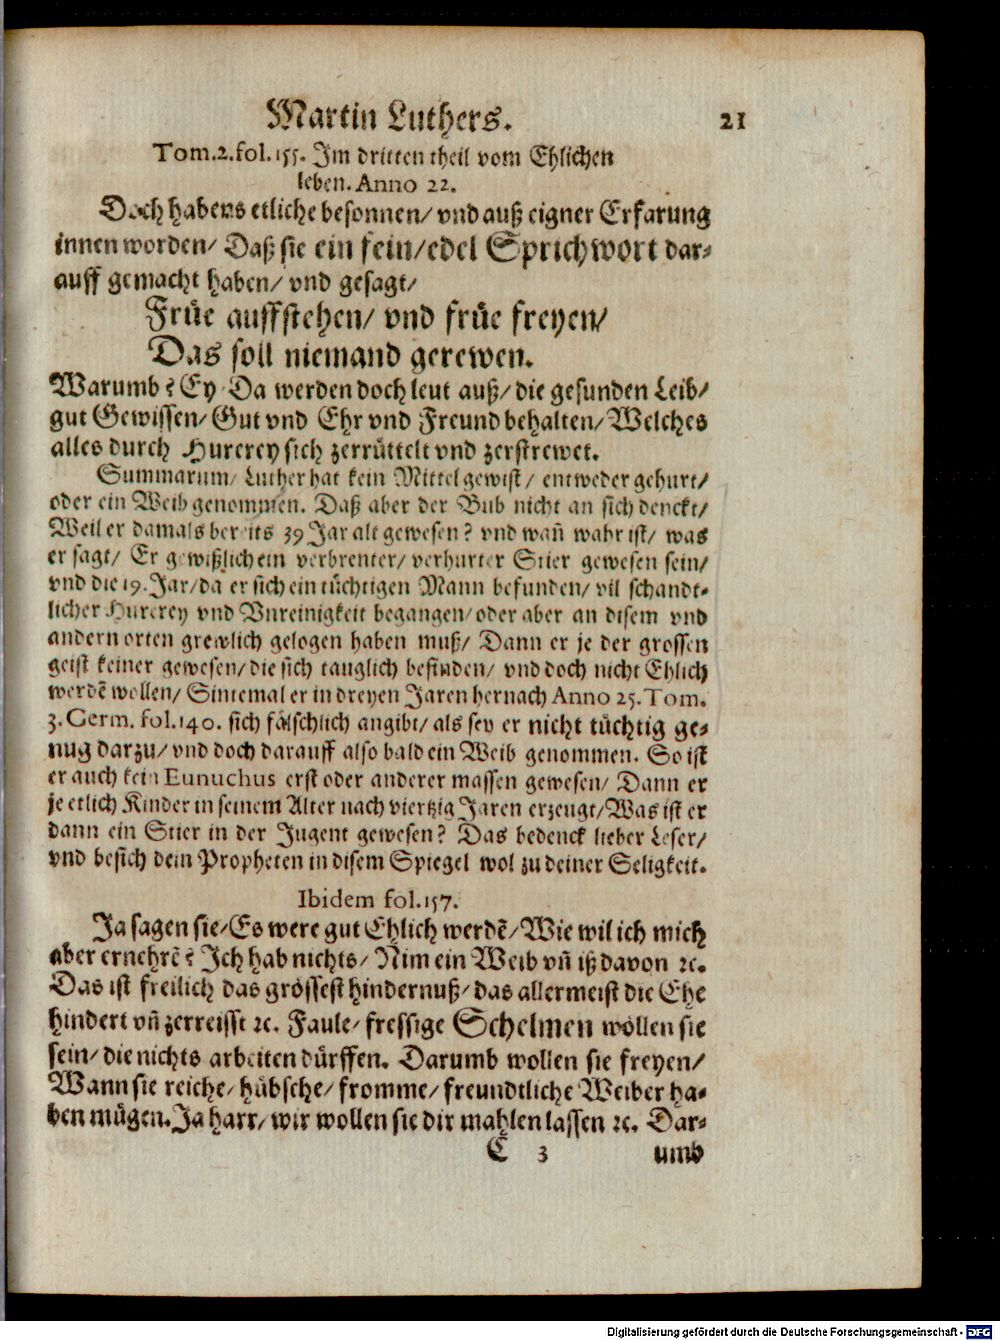 Martin Luthers. 21
Tom.2.fol.155. Im dritten theil vom Ehlichen
leben. Anno 22.
Doch habens etliche besonnen/ vnd auß eigner Erfarung
innen worden/ Daß sie ein fein/ edel Sprichwort dar-
auff gemacht haben/ vnd gesagt/
Früe auffstehen/ vnd früe freyen/
Das soll niemand gerewen.
Warumb? Ey Da werden doch leut auß/ die gesunden Leib/
gut Gewissen/ Gut vnd Ehr vnd Freund behalten/ Welches
alles durch Hurerey sich zerrüttelt vnd zerstrewet.
Summarum/ Luther hat kein Mittel gewist/ entweder gehurt/
oder ein Weib genommen. Daß aber der Bub nicht an sich denckt/
Weil er damals bereits 39 Jar alt gewesen? vnd wañ wahr ist/ was
er sagt/ Er gewißlich ein verbrenter/ verhurter Stier gewesen sein/
vnd die 19. Jar/ da er sich ein tüchtigen Mann befunden/ vil schandt-
licher Hurerey vnd Vnreinigkeit begangen/ oder aber an disem vnd
andern orten grewlich gelogen haben muß/ Dann er je der grossen
geist keiner gewesen/ die sich tauglich befinden/ vnd doch nicht Ehlich
werdẽ wollen/ Sintemal er in dreyen Jaren hernach Anno 25. Tom.
3. Germ. fol.140. sich fälschlich angibt/ als sey er nicht tüchtig ge-
nug darzu/ vnd doch darauff also bald ein Weib genommen. So ist
er auch kein Eunuchus erst oder anderer massen gewesen/ Dann er
je etlich Kinder in seinem Alter nach viertzig Jaren erzeugt/ Was ist er
dann ein Stier in der Jugent gewesen? Das bedenck lieber Leser/
vnd besich dein Propheten in disem Spiegel wol zu deiner Seligkeit.
Ibidem fol.157.
Ja sagen sie/ Es were gut Ehlich werdẽ/ Wie wil ich mich
aber ernehrẽ? Ich hab nichts/ Nim ein Weib vñ iß davon ꝛc.
Das ist freilich das grössest hindernuß/ das allermeist die Ehe
hindert vñ zerreisst ꝛc. Faule/ fressige Schelmen wöllen sie
sein/ die nichts arbeiten dürffen. Darumb wollen sie freyen/
Wann sie reiche/ hübsche/ fromme/ freundtliche Weiber ha-
ben mügen. Ja harr/ wir wollen sie dir mahlen lassen ꝛc. Dar-
C 3 umb
Digitalisierung gefördert durch die Deutsche Forschungsgemeinschaft - DFG